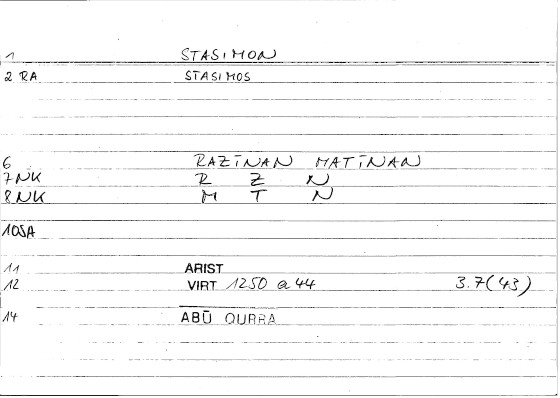 1 STASIMON
2 RA STASIMOS
6 RAZĪNAN MATĪNAN
7NK R Z N
8NK M T N
10SA
11 ARIST
12 VIRT 1250 a 44 3.7(43)
14 ABŪ QURRA